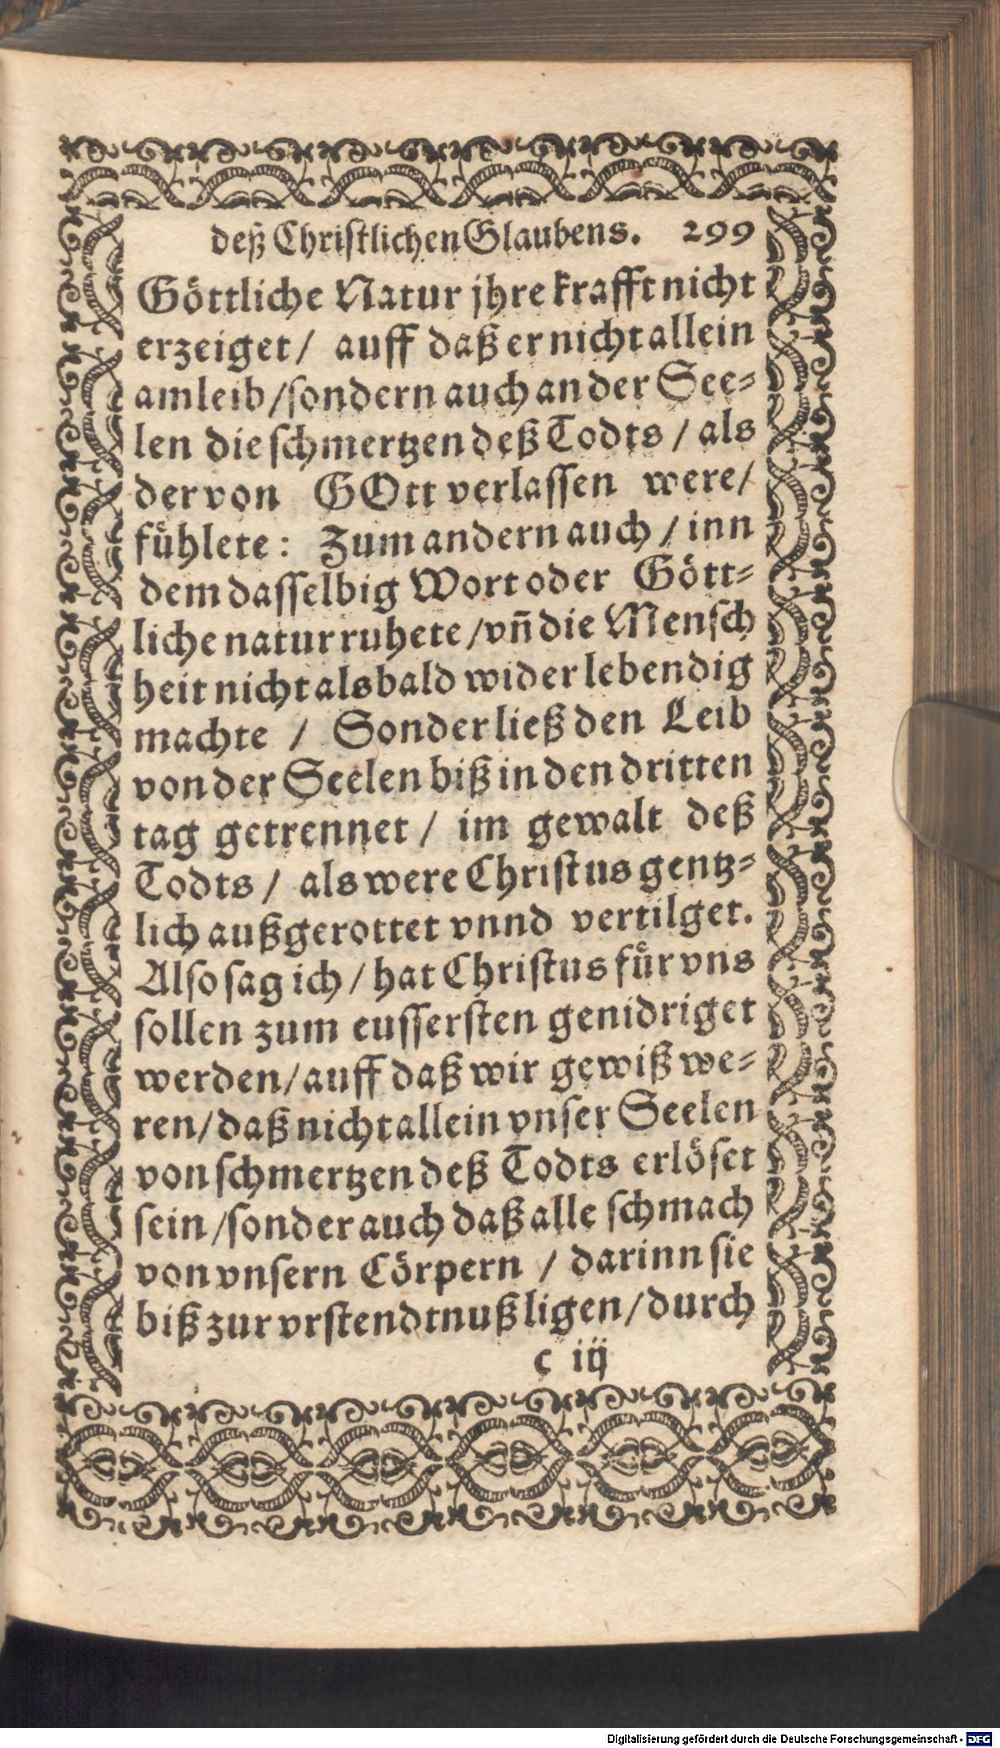 deß Christlichen Glaubens. 299
Göttliche Natur jhre krafft nicht
erzeiget / auff daß er nicht allein
am leib / sondern auch an der See-
len die schmertzen deß Todts / als
der von GOtt verlassen were /
fühlete : Zum andern auch / inn
dem dasselbig Wort oder Gött-
liche natur ruhete / vñ die Mensch
heit nicht als bald wider lebendig
machte / Sonder ließ den Leib
von der Seelen biß in den dritten
tag getrennet / im gewalt deß
Todts / als were Christus gentz-
lich außgerottet vnnd vertilget.
Also sag ich / hat Christus für vns
sollen zum eussersten genidriget
werden / auff daß wir gewiß we-
ren / daß nicht allein vnser Seelen
von schmertzen deß Todts erlöset
sein / sonder auch daß alle schmach
von vnsern Cörpern / darinn sie
biß zur vrstendtnuß ligen / durch
c iij
Digitalisierung gefördert durch die Deutsche Forschungsgemeinschaft - DFG